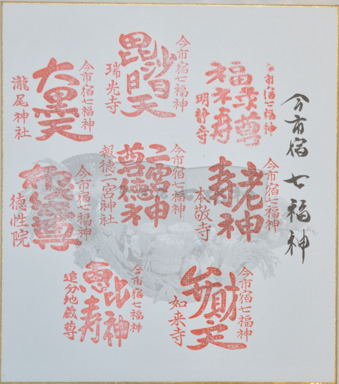 今市宿七福神
今市宿七福神
明静寺
今市宿七福神
毘沙門天
瑞光寺
今市宿七福神
大黒天
瀧尾神社
今市宿七福神
寿老神
本敬寺
今市宿七福神
二宮尊徳神
報徳二宮神社
今市宿七福神
徳性院
今市宿七福神
弁財天
如来寺
今市宿七福神
恵比寿神
追分地蔵尊